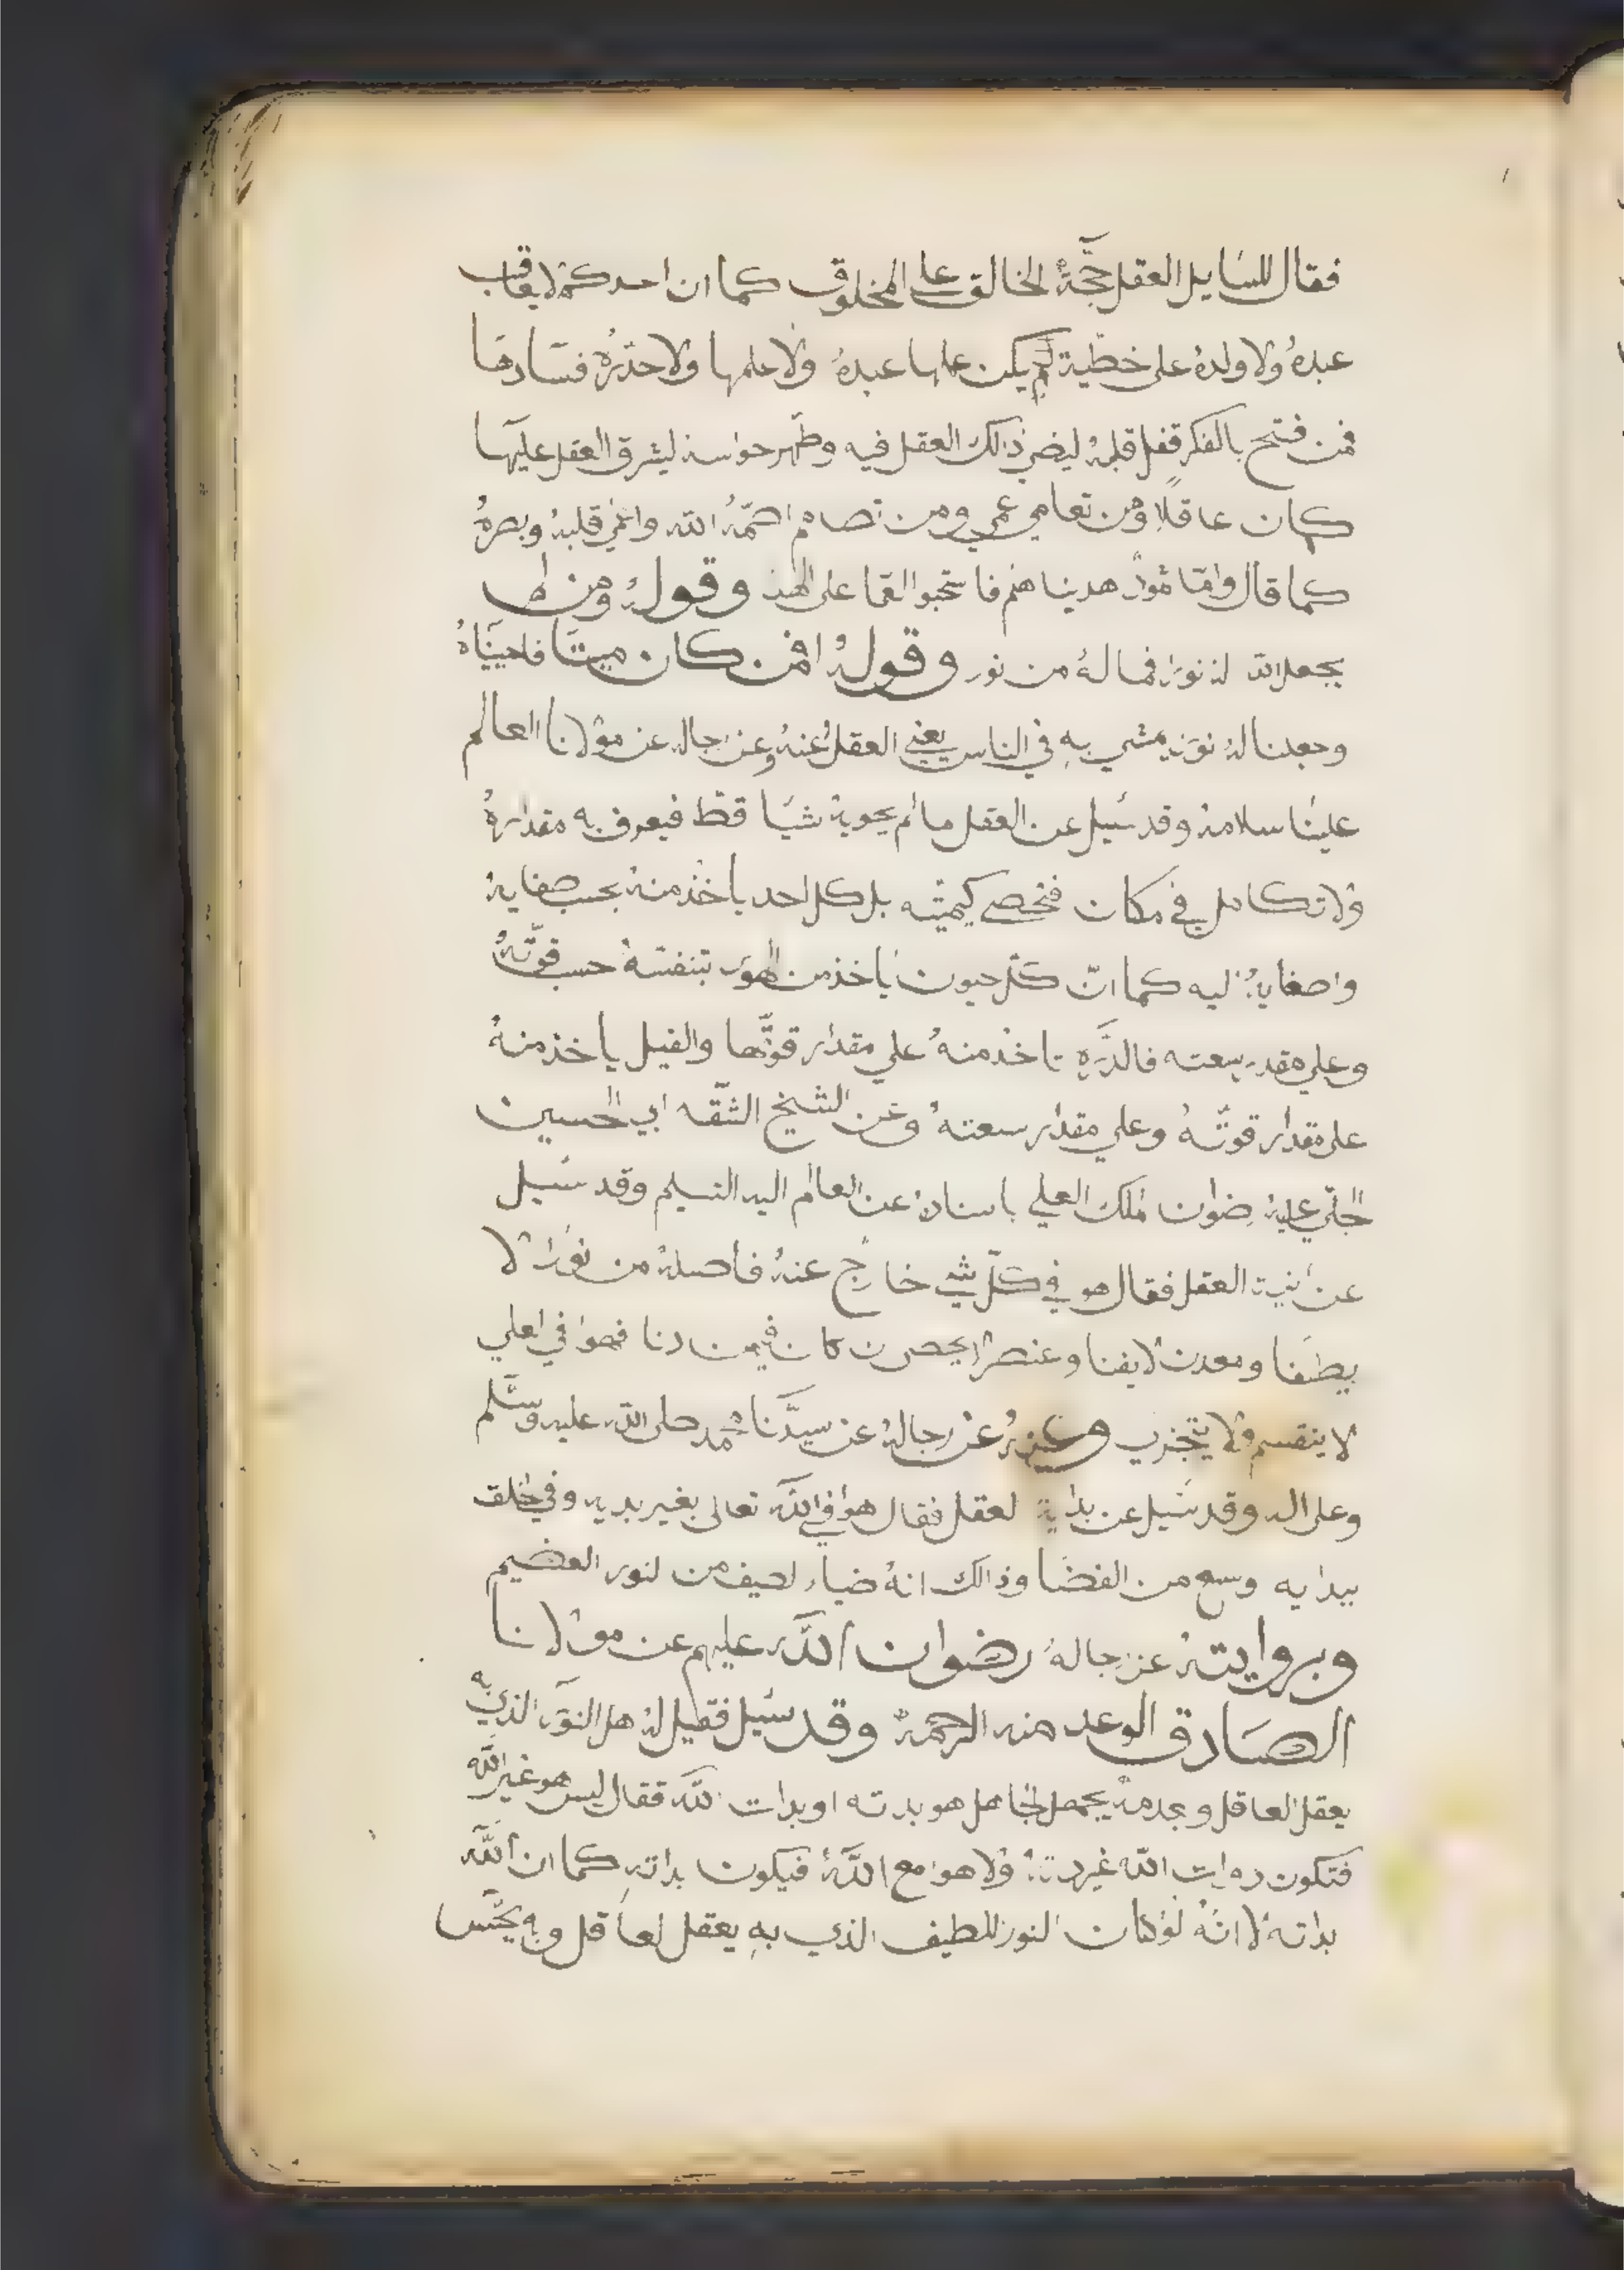 فقال للسايل العقل حجّة الخالق علي المخلوق كما ان احدكم لا يعاقب
عبدهُ ولا ولدهُ علي خطّية لم يكن علمها عبدهُ ولا علمها ولا حذّرهُ فسادها
فمن فتح بالفكر قفل قلبهُ ليضي ذالك العقل فيه وطهر حواسه ليشرق العقل عليها
كان عاقلاً ومن تعامي عمي ومن تصامم اصمّهُ الله واعمي قلبهُ وبصرهُ
كما قال وامّا ثمود هديناهم فاستحبوا العما علي الهدا وقولهُ ومن لم
يجعل الله لهُ نورا فما لهُ من نور وقولهُ افمن كان ميتا فاحييناهُ
وجعلنا لهُ نورا يمشي بهِ في الناس يعني العقل وعنهُ عن رجاله عن مولانا العالم
علينا سلامهُ وقد سُيل عن العقل ما لم يحويهُ شيا قط فيعرف به مقدارهُ
ولا تكامل في مكان فتحصي كيميته بل كل احد ياخذ منهُ بحسب صفايهُ
واصغايهُ اليه كما انّ كلّ حيون ياخذ من الهوى بتنفسّهُ حسب قوّتهُ
وعلي مقدار سعته فالذّرهِ تاخذ منهُ علي مقدار قوّتها والفيل ياخذ منهُ
علي مقدار قوتّهُ وعلي مقدار سعتهُ وعن الشيخ الثقّه ابي الحسين
الجلّي عليهُ رضوان الملك العلي باسنادهُ عن العالم اليه التسليم وقد سُيل
عن اينية العقل فقال هو في كلّ شي خارج عنهُ فاصلهُ من نورا لا
يطفا ومعدن لا يفنا وعنصر لا يحصر ان كان فيمن دنا فهوا في اعلي
لا ينقسم ولا يتجزي وعنهُ عن رجالهُ عن سيدّنا محمد صلى الله عليه وسّلم
وعلي اله وقد سُيل عن بداية العقل فقال هوا في الله تعالي بغير بديه وفي الخلق
ببدايه وسع من الفضا وذالك انهُ ضياء لطيف من النور العضيم
وبروايتهُ عن رجالهُ رضوان الله عليهم عن مولانا
الصادق الوعد منه الرحمة وقد سُيل فقيل لهُ هل النور الذي به
يعقل العاقل وبعدمهُ يجهل الجاهل هو بذاته او بذات الله فقال ليس هو غير الله
فتكون ذوات الله غير ذاته ولا هوا مع اللهُ فيكون بذاتهِ كما ان الله
بذاته لا انهُ لو كان النور اللطيف الذي بهِ يعقل العاقل وبهِ يحسّ